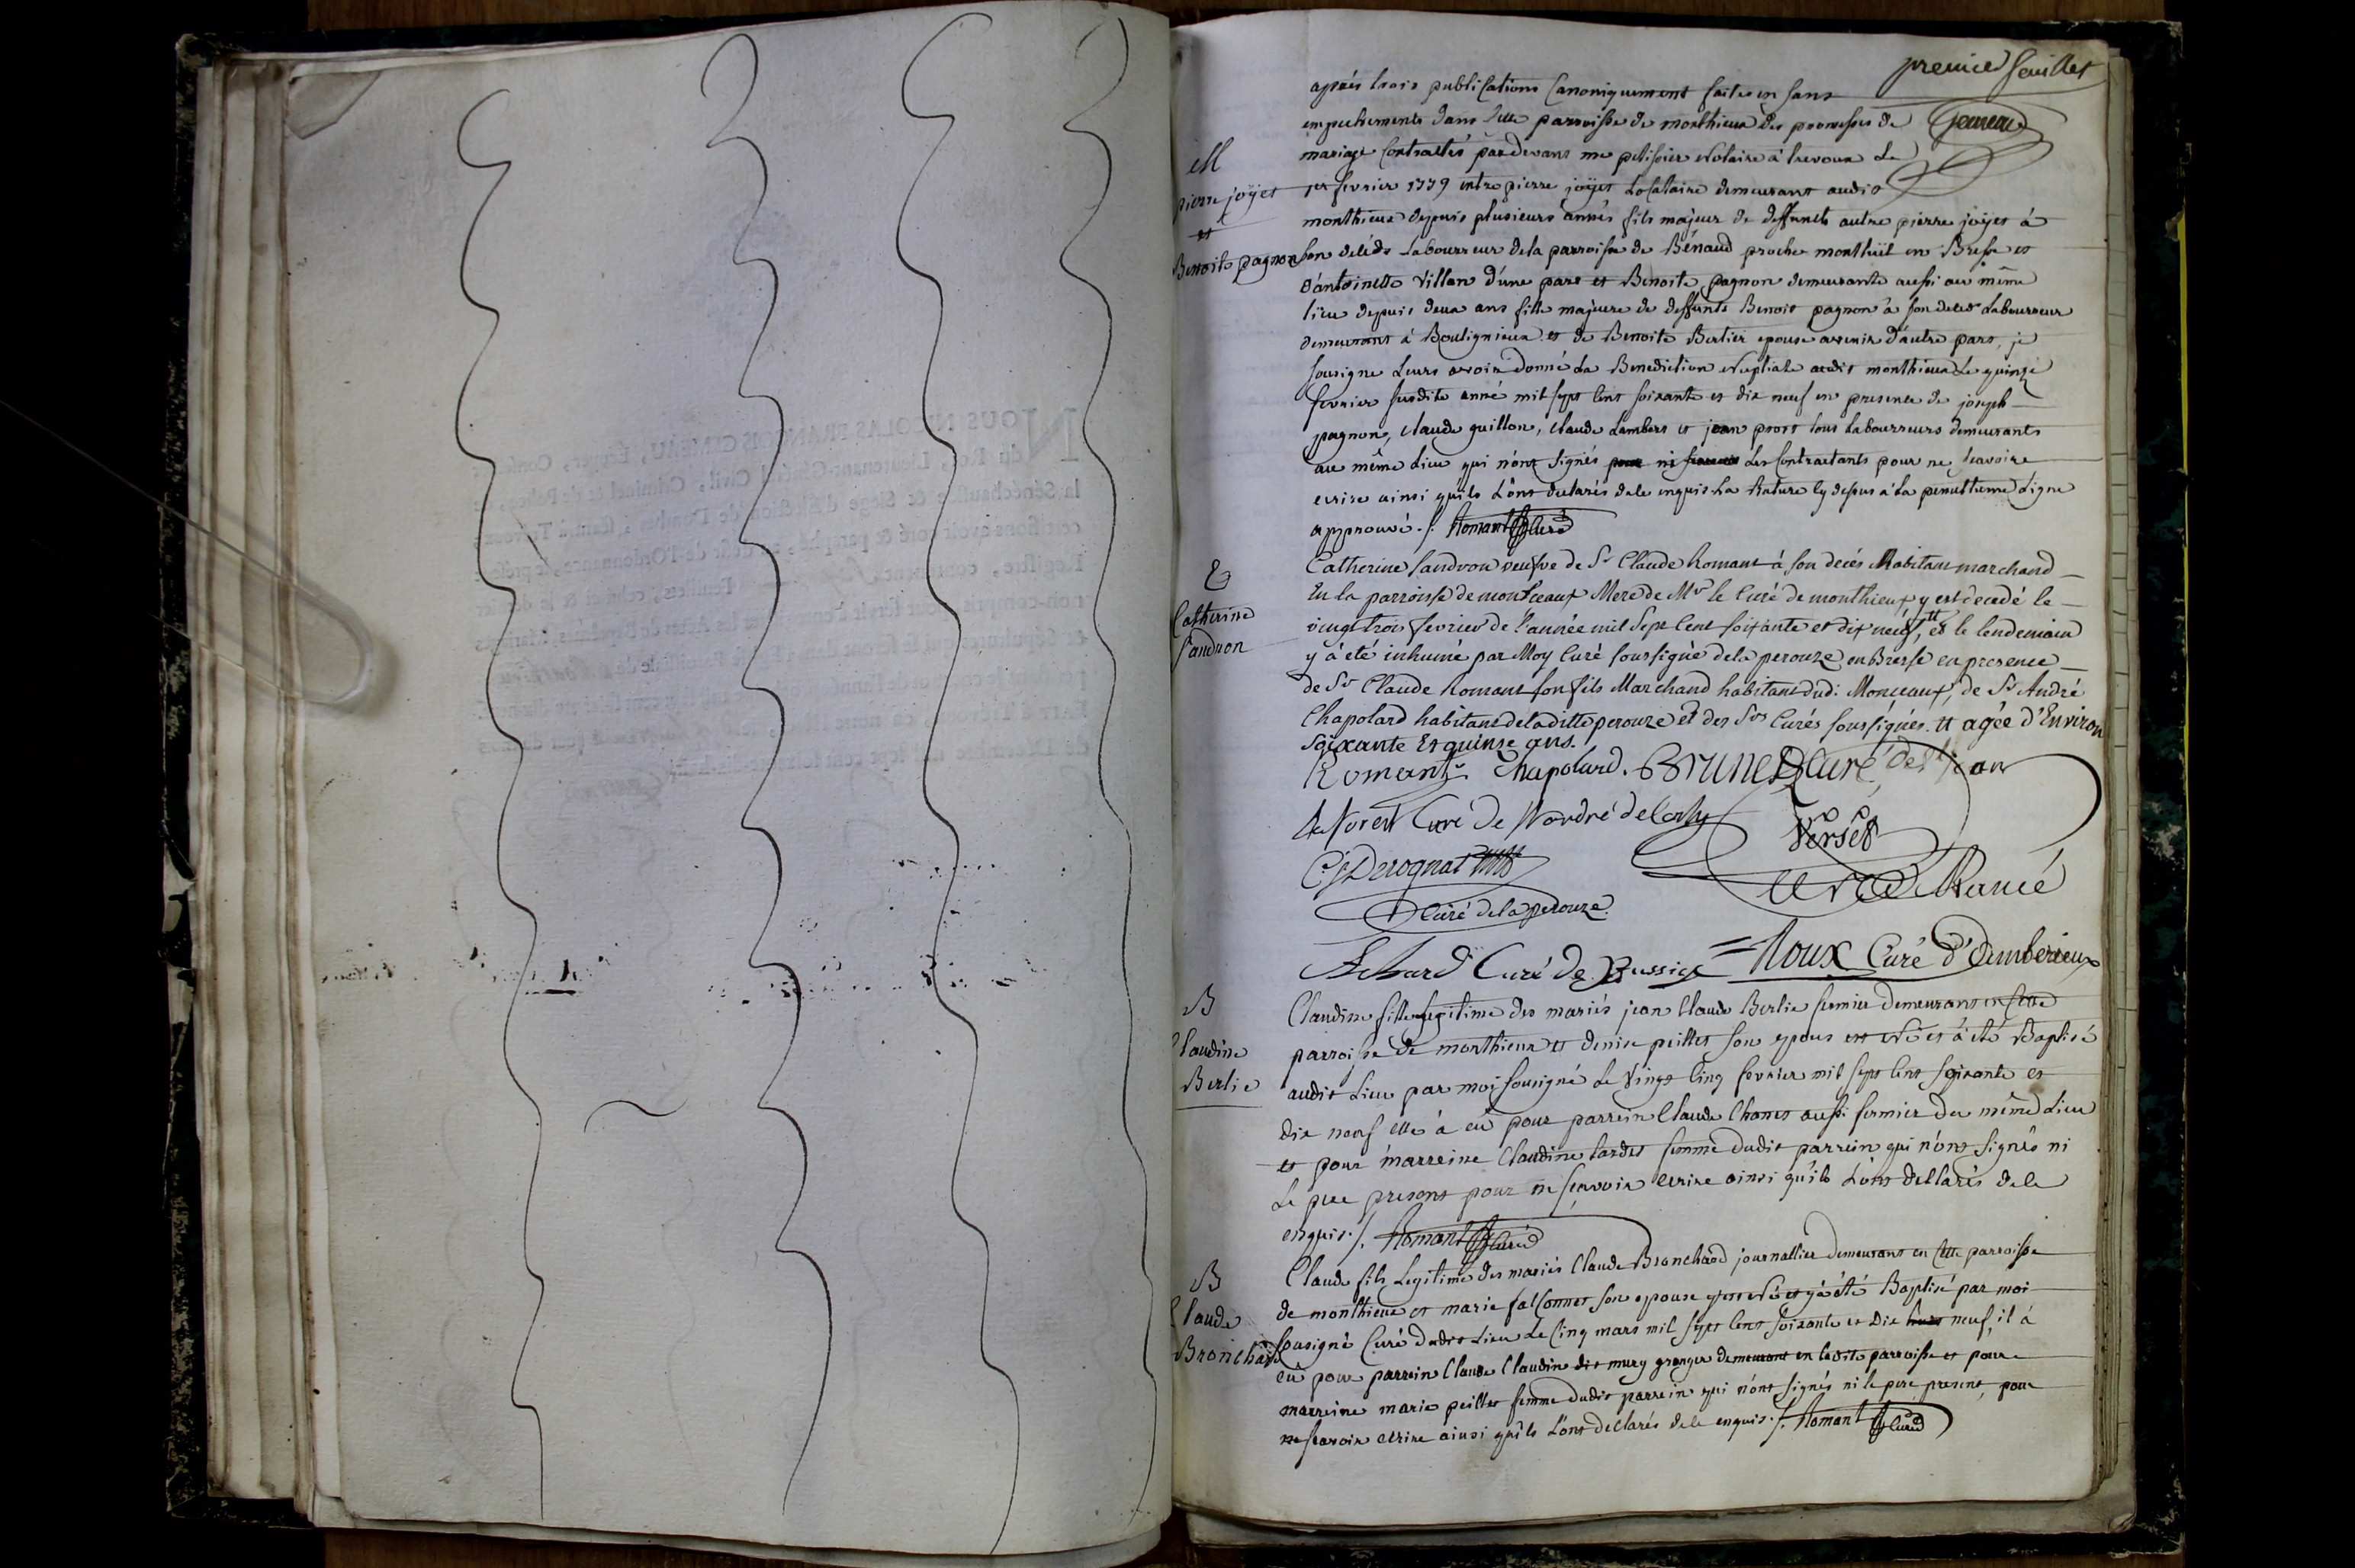 premier feuillet
après trois publications Canoniquement faites en sans
empechements dans cette parroisse de monthieux des promesses de
mariage Contractés pardevant me pelissier Notaire à trevoux Le
1er fevrier 1779 entre pierre joÿet Locataire demeurant audit
monthieux depuis plusieurs annés fils majeur de deffunct autre pierre joÿet à
son decéds Labourreur dela parroisse de Bénaud proche montluël en Bresse et
d'antoinette Villan d'une part et Benoite pagnon demeurante aussi au même
lieu depuis deux ans fille majeure de deffunts Benoit pagnon à son deceds Labourreur
demeurant à Boulignieux et de Benoite Berlier epouse avenir d'autre part, je
sousigné Leurs avoir donné La Benediction Nuptiale audit monthieux Le quinze
fevrier susdite anné mil sept cent soixante et dix neuf en presence de joseph
pagnon, Claude guillon, Claude Lambert et jean prost tous Labourreurs demeurants
au même Lieu qui n'ont signés ni Les Contractants pour ne scavoire
ecrire ainsi qu'ils L'ont declarés dele enquis La Rature cy dessus à La penultieme Ligne
approuvé ./. Romant Curé
M
pierre joÿet
et
Benoite pagnon
Catherine Sandron veufve de Sr Claude Romant à son decés Habitant marchand
En la parroisse de montceaux Mere de Mr le Curé de monthieux y est decedé le
vingt trois fevrier de l'année mil Sept Cent soixante et dix neuf, tt et le lendemain
y à eté inhumé par Moy Curé soussigné dela perouze en Bresse en presence
de Sr Claude Romant son fils Marchand habitant dud. Monceaux, de Sr André
Chapolard habitant deladitte perouze et des Srs Curés soussignés. tt agée d'Environ
soixante Et quinze ans.
S
Catherine
Sandron
Romant Chapolard. Brunet Curé de St jean
Curé de St andré de Corcy
Verset
Curé de Rancé
Derognat
Curé dela perouze.
Curé de Bussige Roux Curé d'Amberieux
B
Claudine
Berlie
Claudine fille Legitime des mariés jean Claude Berlie fermier demeurant en cette
parroisse de monthieux et denise peillet son epouse est Né et à été Baptisé
audit Lieu par moi sousigné Le Vingt Cinq fevrier mil sept Cent soixante et
dix neuf elle à eû pour parrein Claude Chanet aussi fermier du même Lieu
et pour marreine Claudine tardet femme dudit parrein qui n'ont signés ni
Le pere present pour ne scavoir ecrire ainsi qu'ils L'ont declarés dele
enquis ./. Romant Curé
B
Claude
Bronchard
Claude fils Legitime des mariés Claude Bronchard journallier demeurant en Cette parroisse
de monthieux et marie falsonnet son epouse y est Né et y à été Baptisé par moi
sousigné Curé dudit Lieu Le Cinq mars mil sept Cent soixante et dix neuf, il à
eû pour parrein Claude Claudin dit mury granger demeurant en ladite parroisse et pour
marreine marie peillet femme dudit parrein qui n'ont signés ni le pere present, pour
ne scavoir ecrire ainsi qu'ils L'ont declarés dele enquis ./. Romant Curé